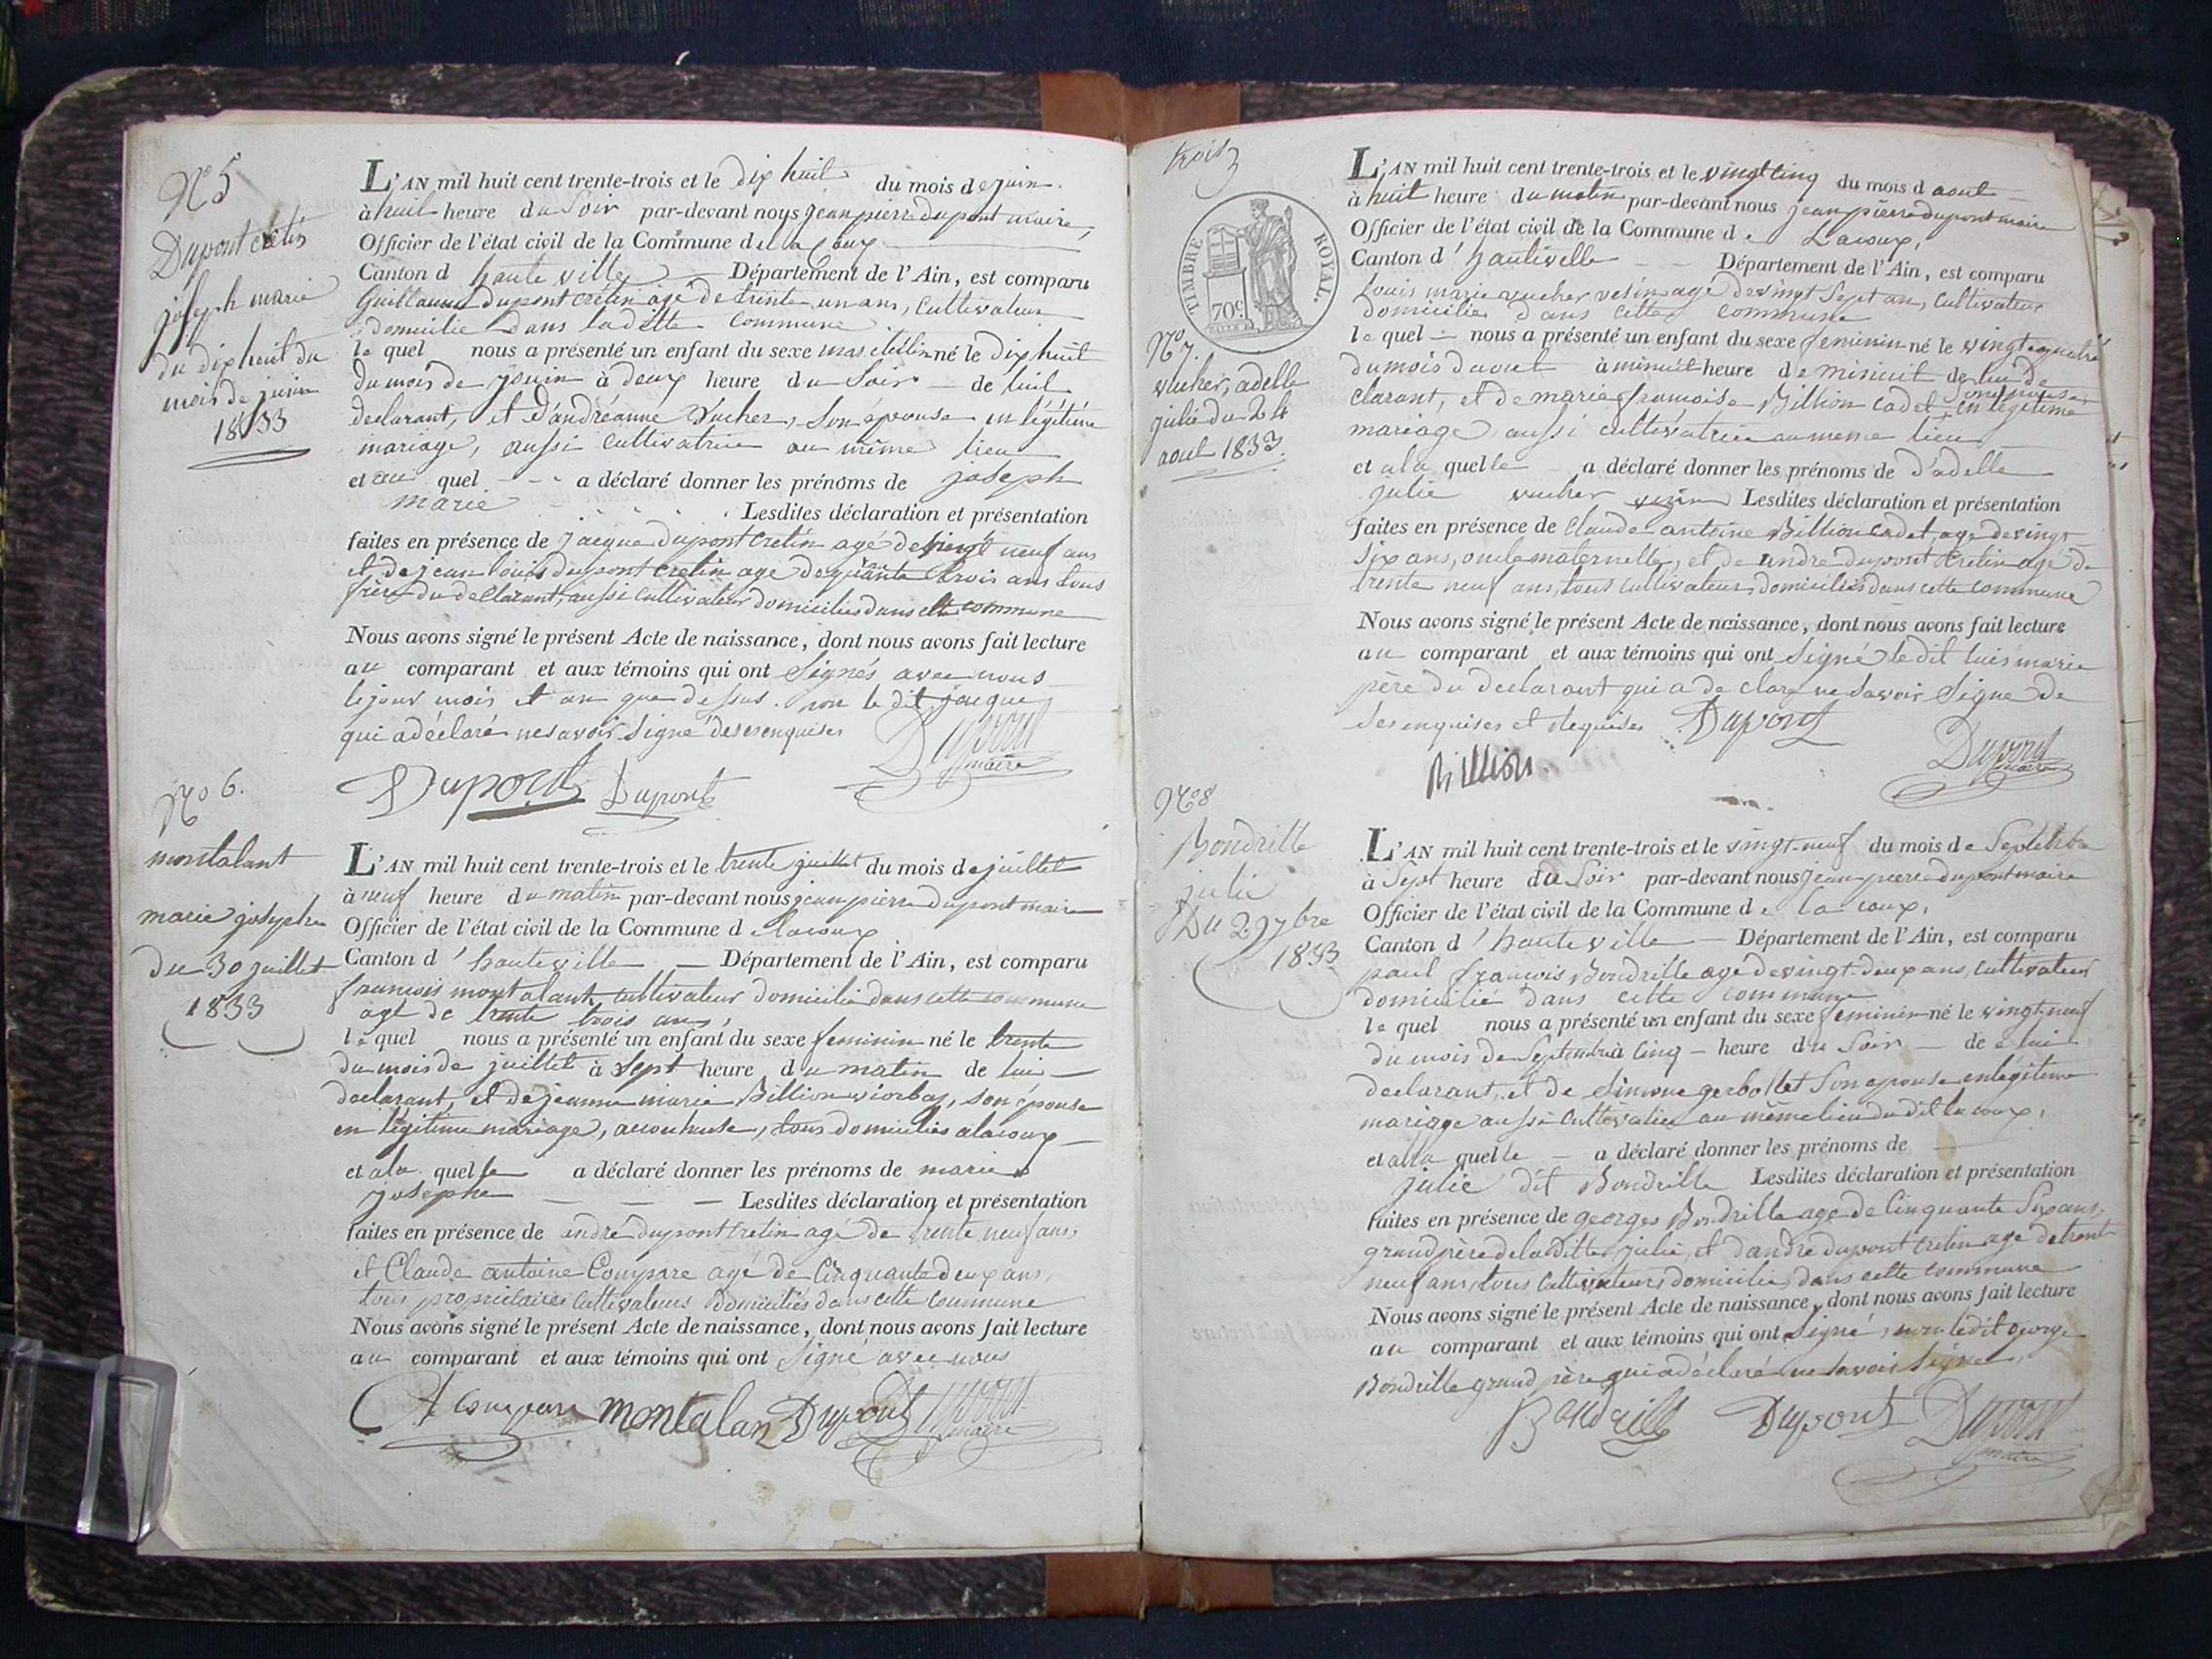 N° 5
Dupont cretin
joseph marie
du dix huit du
mois de juin
1833
L'AN mil huit cent trente-trois et le dix huit du mois de juin
à huit heure du Soir par-devant nous jean pierre dupont maire,
Officier de l'état civil de la Commune de la Coux
Canton d haute ville Département de l'Ain, est comparu
Guillaume Dupont crétin agé de trente un ans, Cultivateur
domicilie dans ladette Commune
le quel nous a présenté un enfant du sexe masculin né le dix huit
du mois de jouin à deux heure du Soir de luil
declarant, et d'andréanne Vucher, Son épouse en légitime
mariage, aussi Cultivatrice au même lieu
et au quel a déclaré donner les prénoms de joseph
marie Lesdites déclaration et présentation
faites en présence de jacque Dupont cretin agé de neuf ans
et de jean louis dupont cretin age de trois ans tous
frère du declarant, aussi Cultivateur domiciliés dans cette commune
Nous avons signé le présent Acte de naissance, dont nous avons fait lecture
au comparant et aux témoins qui ont Signés avec nous
le jour mois et an que dessus. non le dit jacque
qui a déclaré ne savoir Signé de ses enquises
Dupont maire
Dupont Dupont
N° 6.
montalant
marie josephe
du 30 juillet
1833
L'AN mil huit cent trente-trois et le trente juillet du mois de juillet
à neuf heure du matin par-devant nous jean pierre dupont maire
Officier de l'état civil de la Commune de lacoux
Canton d'hauteville Département de l'Ain, est comparu
francois montalant cultivateur domicilié dans cette commune
age de trente trois ans,
le quel nous a présenté un enfant du sexe feminin né le trente
du mois de juillet à Sept heure du matin de lui
declarant, et de jeanne marie Billion, son épouse
en légitime mariage, accouheuse, tous domiciliés alacoux
et a la quelle a déclaré donner les prénoms de marie
josephe Lesdites déclaration et présentation
faites en présence de andré dupont cretin agé de trente neuf ans,
et Claude antoine Compare agé de Cinquante deux ans,
tous proprietaires Cultivateurs domiciliés dans cette Commune
Nous avons signé le présent Acte de naissance, dont nous avons fait lecture
au comparant et aux témoins qui ont Signé avec nous
Compare montalan Dupont Dupont
maire
trois
TIMBRE ROYAL.
70c
N° 7.
vucher, adelle
julie du 24
aout 1833.
L'AN mil huit cent trente-trois et le vingt cinq du mois d aout
à huit heure du matin par-devant nous jean pierre dupont maire
Officier de l'état civil de la Commune de Lacoux,
Canton d'hauteville Département de l'Ain, est comparu
Louis marie vucher vesin agé de vingt Sept ans, Cultivateur
domicilié dans cette commune
le quel nous a présenté un enfant du sexe feminin né le vingt quatre
du mois daout à minuit heure de minuit de lui de
clarant, et de marie francoise Billion cadet, Son epouse en legitime
mariage aussi cultivatrice au meme lieu
et ala quelle a déclaré donner les prénoms de d'adelle
julie vucher vezin Lesdites déclaration et présentation
faites en présence de Claude antoine Billion Cadet, age de vingt
Six ans, oncle maternelle, et de andre dupont Cretin age de
trente neuf ans, tous cultivateurs domiciliés dans cette commune
Nous avons signé le présent Acte de naissance, dont nous avons fait lecture
au comparant et aux témoins qui ont Signé le dit luis marie
père du declarant qui a de claré ne Savoir Signe de
Ses enquises et requises Dupont
Billion. Dupont
maire
N° 8
Bondrille
julie
Du 29 7bre
1833
L'AN mil huit cent trente-trois et le vingt-neuf du mois de Septebre
à Sept heure du Soir par-devant nous jean pierre dupont maire
Officier de l'état civil de la Commune de la coux,
Canton d'hauteville Département de l'Ain, est comparu
paul francois Bondrille age de vingt-deux ans, cultivateur
domicilié dans cette commune
le quel nous a présenté un enfant du sexe feminin né le vingt-neuf
du mois de Septembre à Cinq heure du Soir de lui
declarant, et de Simone gerbollet Son epouse en legitime
mariage aussi Cultivatrice au même lieu du dit lacoux,
et alla quelle a déclaré donner les prénoms de
julie dit Bondrille Lesdites déclaration et présentation
faites en présence de georges Bondrille age de Cinquante Six ans,
grand père de la ditte julie, et d'andre dupont cretin age de trente
neuf ans, tous Cultivateurs domicilies dans cette commune
Nous avons signé le présent Acte de naissance, dont nous avons fait lecture
au comparant et aux témoins qui ont Signé, non ledit George
Bondrille grand père qui a déclaré ne Savoir Signer,
Bondrille Dupont Dupont
maire